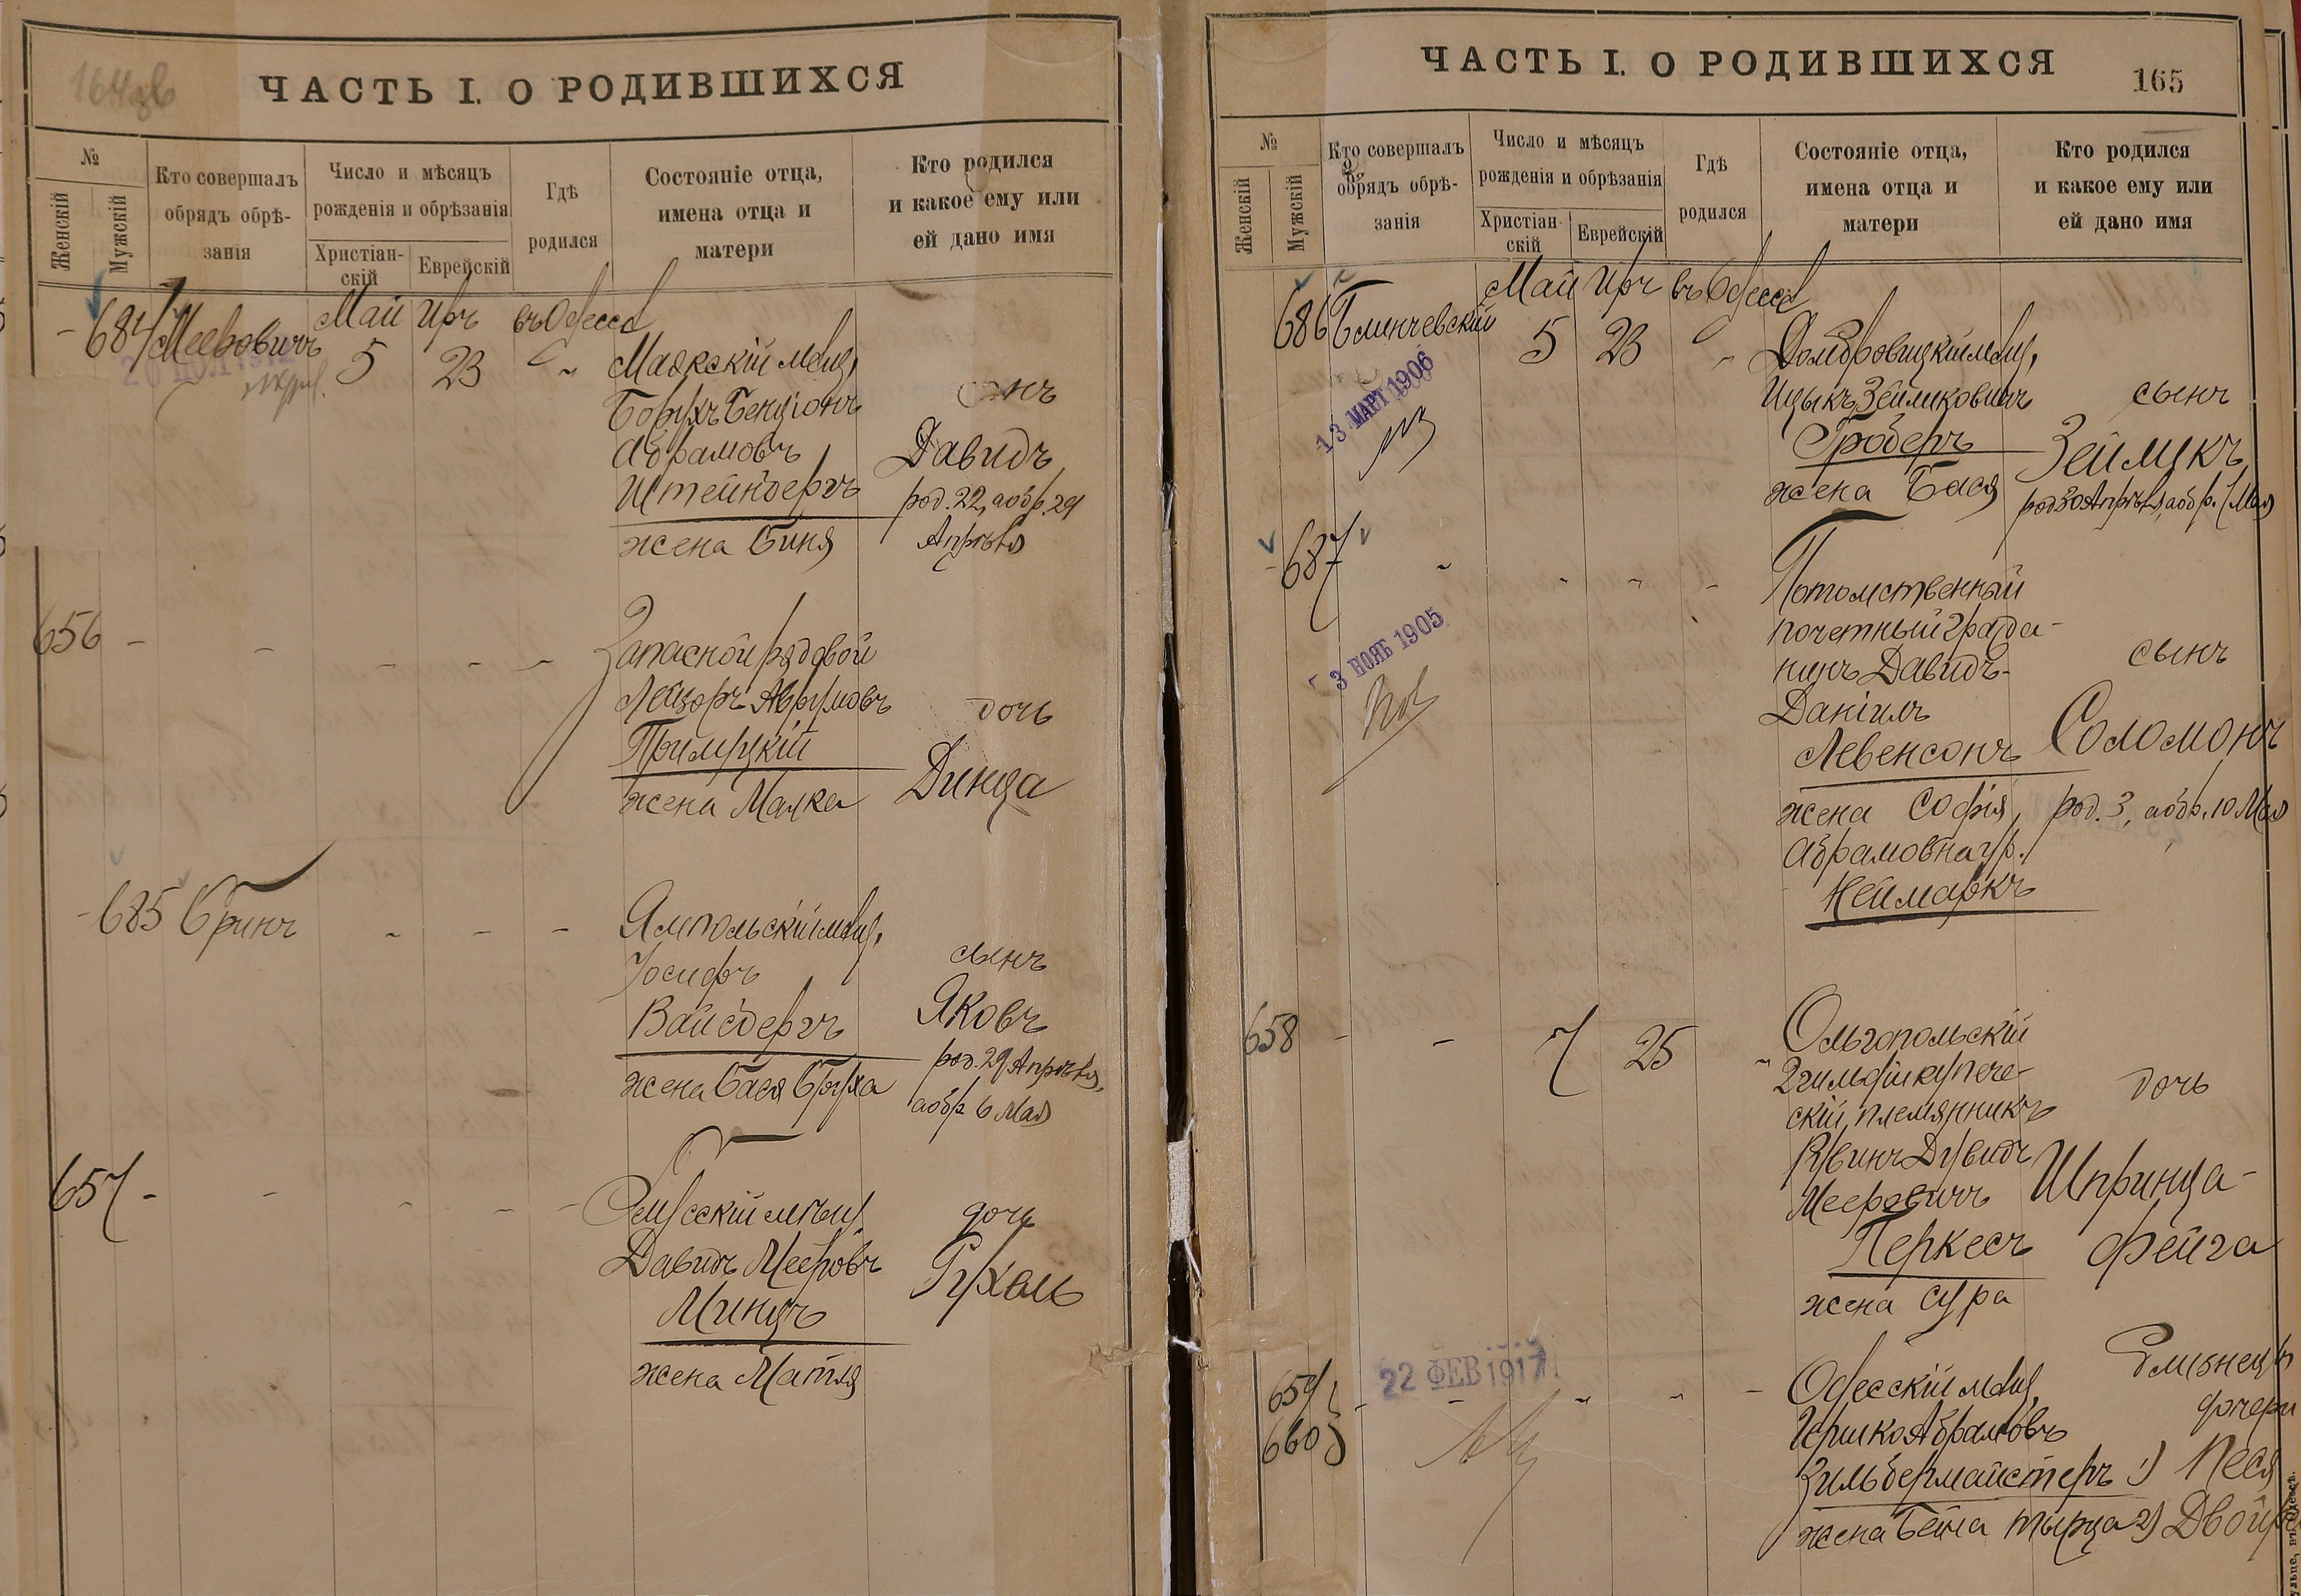 ЧАСТЬ I. О РОДИВШИХСЯ
№
Женскій
Мужскій
Кто совершалъ
обрядъ обрѣ-
занія
Число и мѣсяцъ
рожденія и обрѣзанія
Христіан-
скій
Еврейскій
Гдѣ
родился
Состояніе отца,
имена отца и
матери
Кто родился
и какое ему или
ей дано имя
684 Меерович Май Ир въ Одессѣ
5 23 Маякскій мѣщ.
Борухъ Бенціонъ
Абрамовъ
Штейнбергъ
жена Биня
сынъ
Давидъ
род. 22, а обр. 29
Апрѣля
656
Запасной рядовой
Лейзоръ Аврумовъ
жена Малка
дочь
Динца
685 Гринъ
Ямпольскій мѣщ.
Іосифъ
Вайсбергъ
жена Бася Бруха
сынъ
Яковъ
род. 29 Апрѣля,
а обр. 6 Мая
657
мѣщ.
Давидъ Мееровъ
Минцъ
жена Матля
дочь
Рухль
ЧАСТЬ I. О РОДИВШИХСЯ
165
№
Женскій
Мужскій
Кто совершалъ
обрядъ обрѣ-
занія
Число и мѣсяцъ
рожденія и обрѣзанія
Христіан-
скій
Еврейскій
Гдѣ
родился
Состояніе отца,
имена отца и
матери
Кто родился
и какое ему или
ей дано имя
686 Май Ир въ Одессѣ
13 МАРТ 1906
5 23 Домбровицкій мѣщ.
Ицыкъ Зейликовичъ
Гроберъ
жена Бася
сынъ
Зейликъ
род 30 Апрѣля, а обр. 7 Мая
687
3 НОЯБ 1905
Потомственный
почетный гражда-
нинъ Давидъ-
Даніилъ
Левенсонъ
жена Софія
Абрамовна ур.
Неймаркъ
сынъ
Соломонъ
род. 3, а обр. 10 Мая
658 7 25
Ольгопольскій
2 гильдіи купече-
скій племянникъ
Рувинъ Дувидъ
Мееровичъ
Перкесъ
жена Сура
дочь
Шпринца-
Фейга
659
660
22 ФЕВ 1917
Одесскій мѣщ.
Гершко Абрамовъ
Зильбермайстеръ
жена Бейла Тырца
Близнецы
дочери
1) Песя
2) Двойра